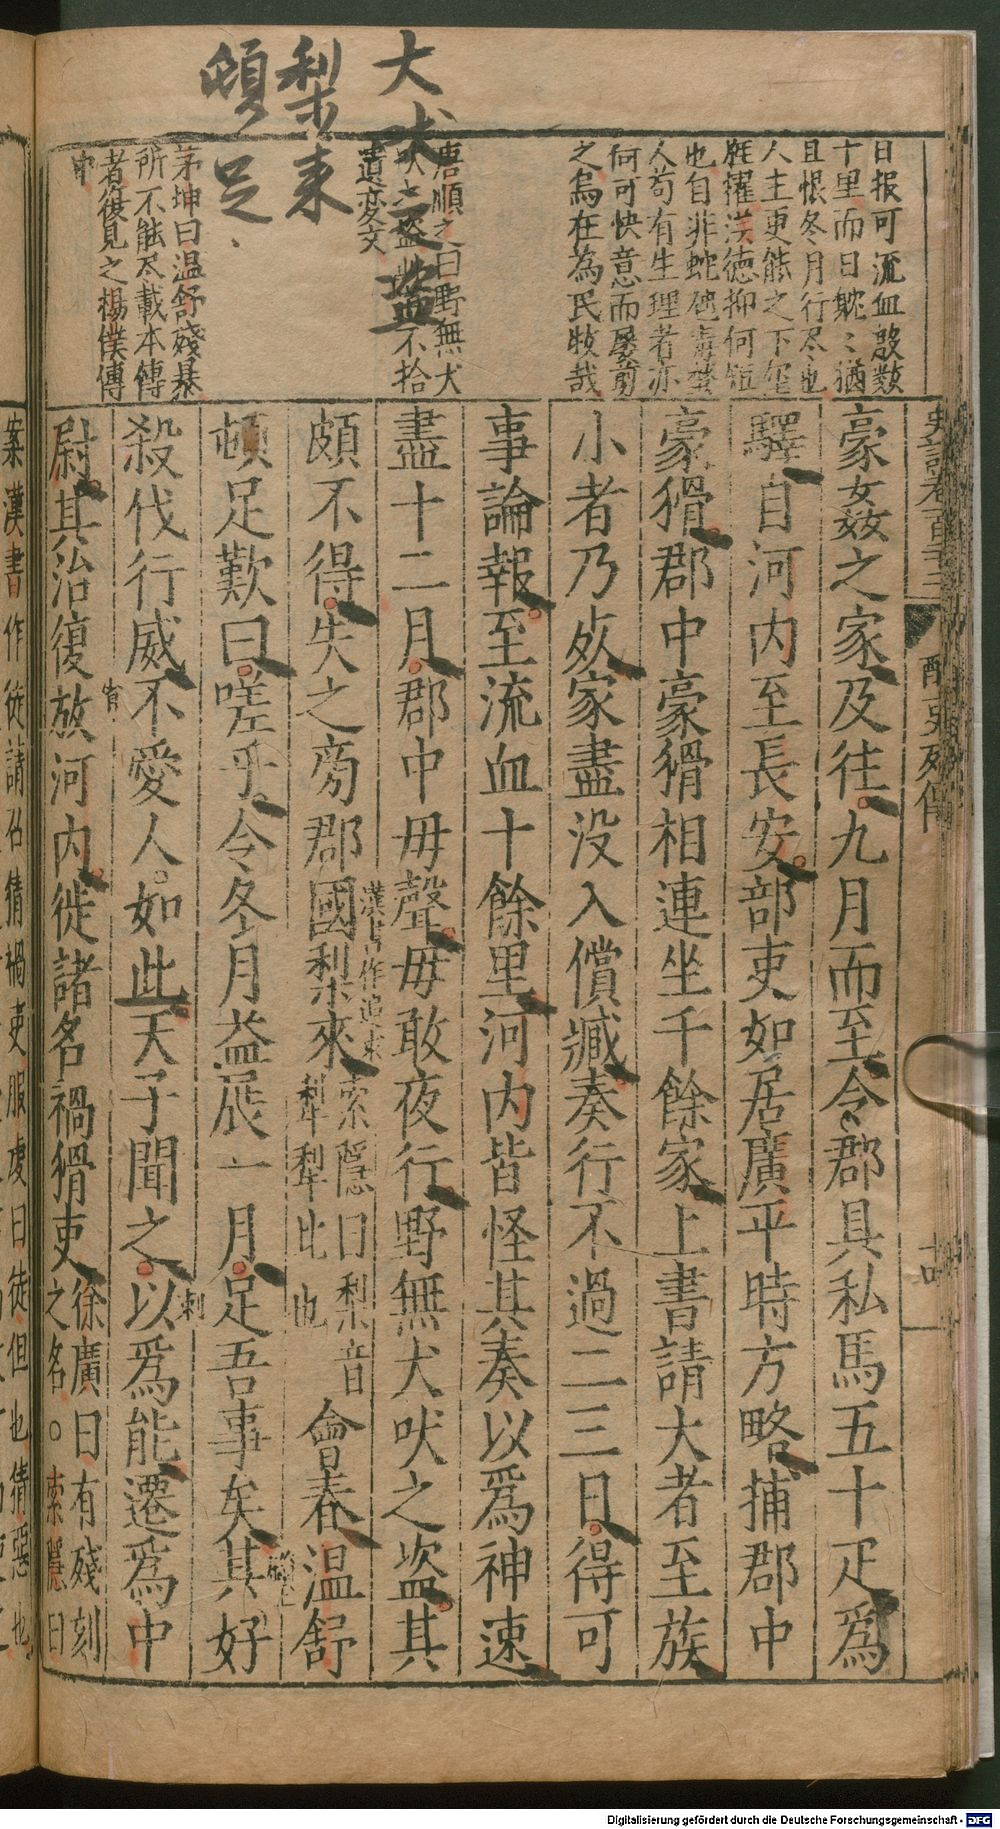 大吠之盜
梨來
頓足
日报可流血殷数
十里而曰躭〻猶
且恨冬月行尽也
人主更能之下
擢漢德抑何
也自非蛇
人苟有生理者亦
何可快意而屡剪
之烏在為民牧哉
唐順之曰野無犬
吠之盜 不拾
遺変文
茅坤曰温舒殘暴
所不能尽載本傳
者復見之楊僕傳
中
史記卷百二十二
酷吏列傳
十四
豪姦之家及往九月而至令郡具私馬五十疋爲
驛自河内至長安部吏如居廣平時方略捕郡中
豪猾郡中豪猾相連坐千餘家上書請大者至族
小者乃死家盡没入償臧奏行不過二三日得可
事論報至流血十餘里河内皆怪其奏以爲神速
盡十二月郡中毋聲毋敢夜行野無犬吠之盜其
頗不得失之旁郡國梨來索隱曰梨音犂犂比也會春温舒
漢書作追求
頓足歎曰嗟乎令冬月益展一月足吾事矣其好
殺伐行威不愛人如此天子聞之以爲能遷爲中
尉其治復放河内徙諸名禍猾吏徐廣曰有殘刻之名。○索隱曰
案漢書作徙請召猜禍吏服虔曰徒但也猜惡也
Digitalisierung gefördert durch die Deutsche Forschungsgemeinschaft - DFG